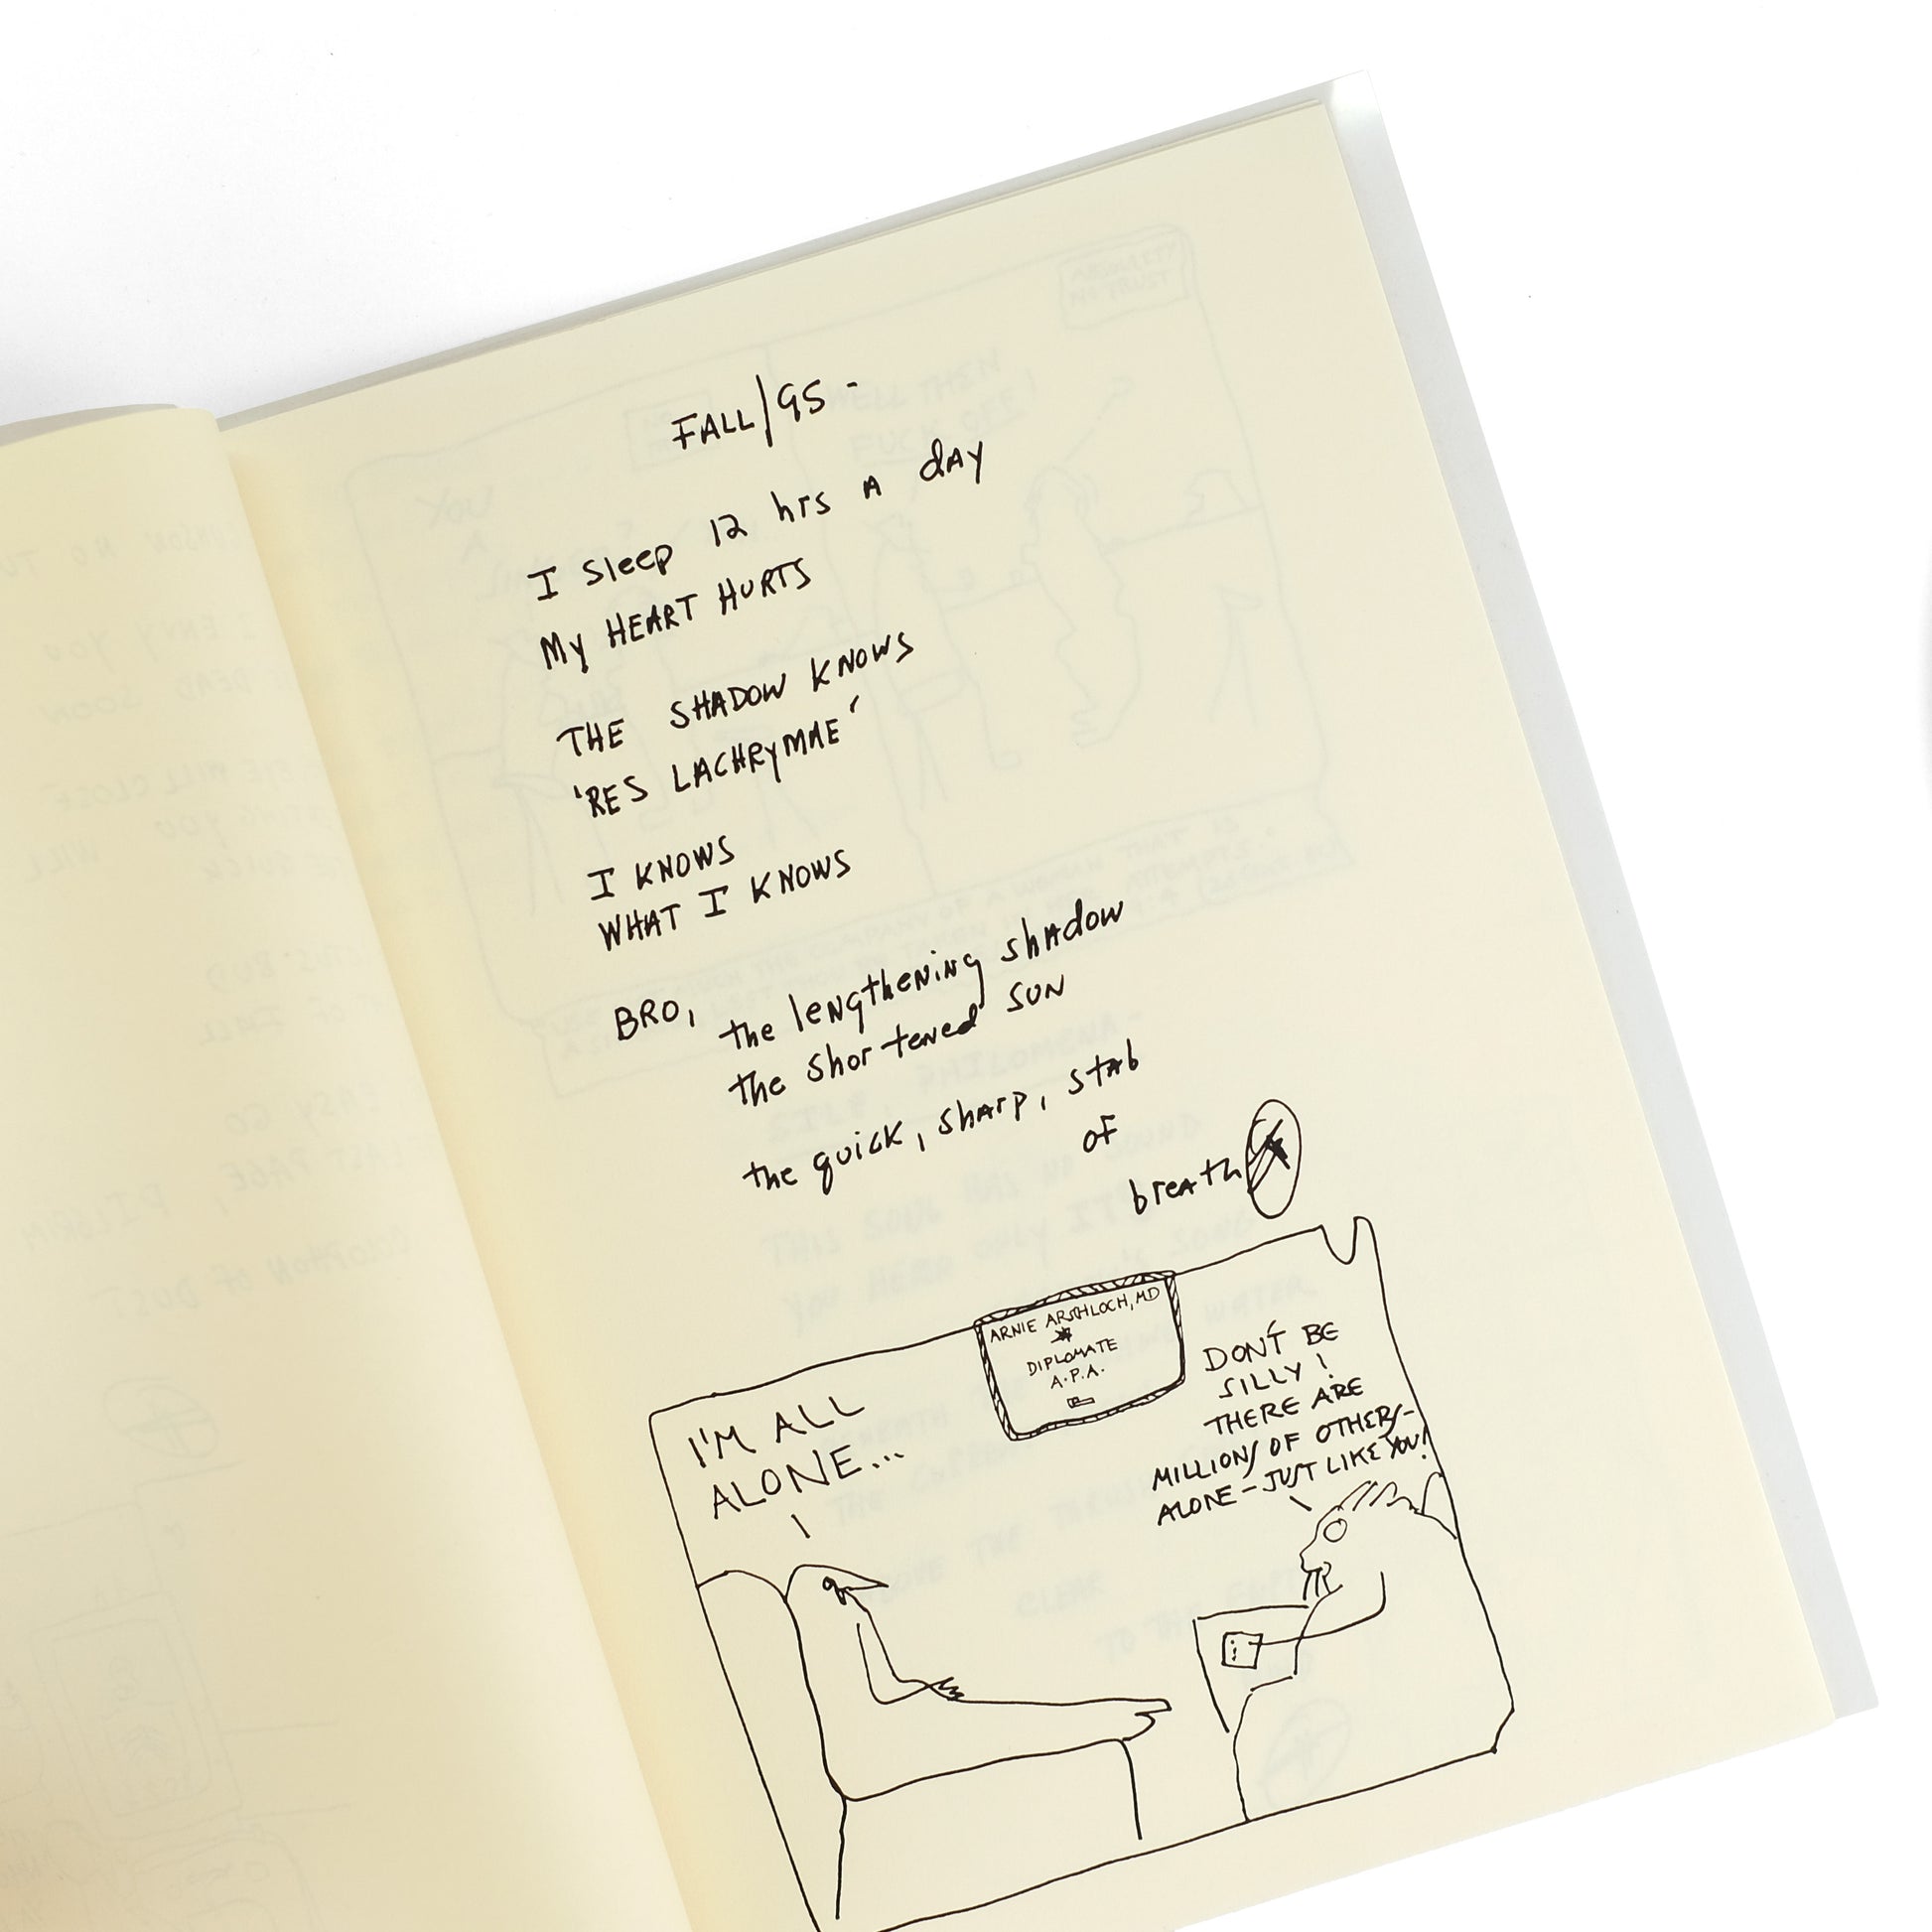 FALL/95-
I sleep 12 hrs A dAY
My HEART HURTS
THE SHADOW KNOWS
'RES LACHRYMAE'
I KNOWS
WHAT I KNOWS
BRO, the lengthening shadow
the shortened SUN
the quick, sharp, stab
of
breath
ARNIE ARSCHLOCH, MD
DIPLOMATE
A.P.A.
I'M ALL
ALONE...
DON'T BE
SILLY!
THERE ARE
MILLIONS OF OTHERS-
ALONE-JUST LIKE YOU!